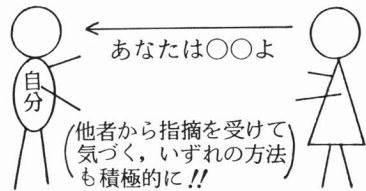 あなたは○○よ
自分
(他者から指摘を受けて
気づく，いずれの方法
も積極的に!!)